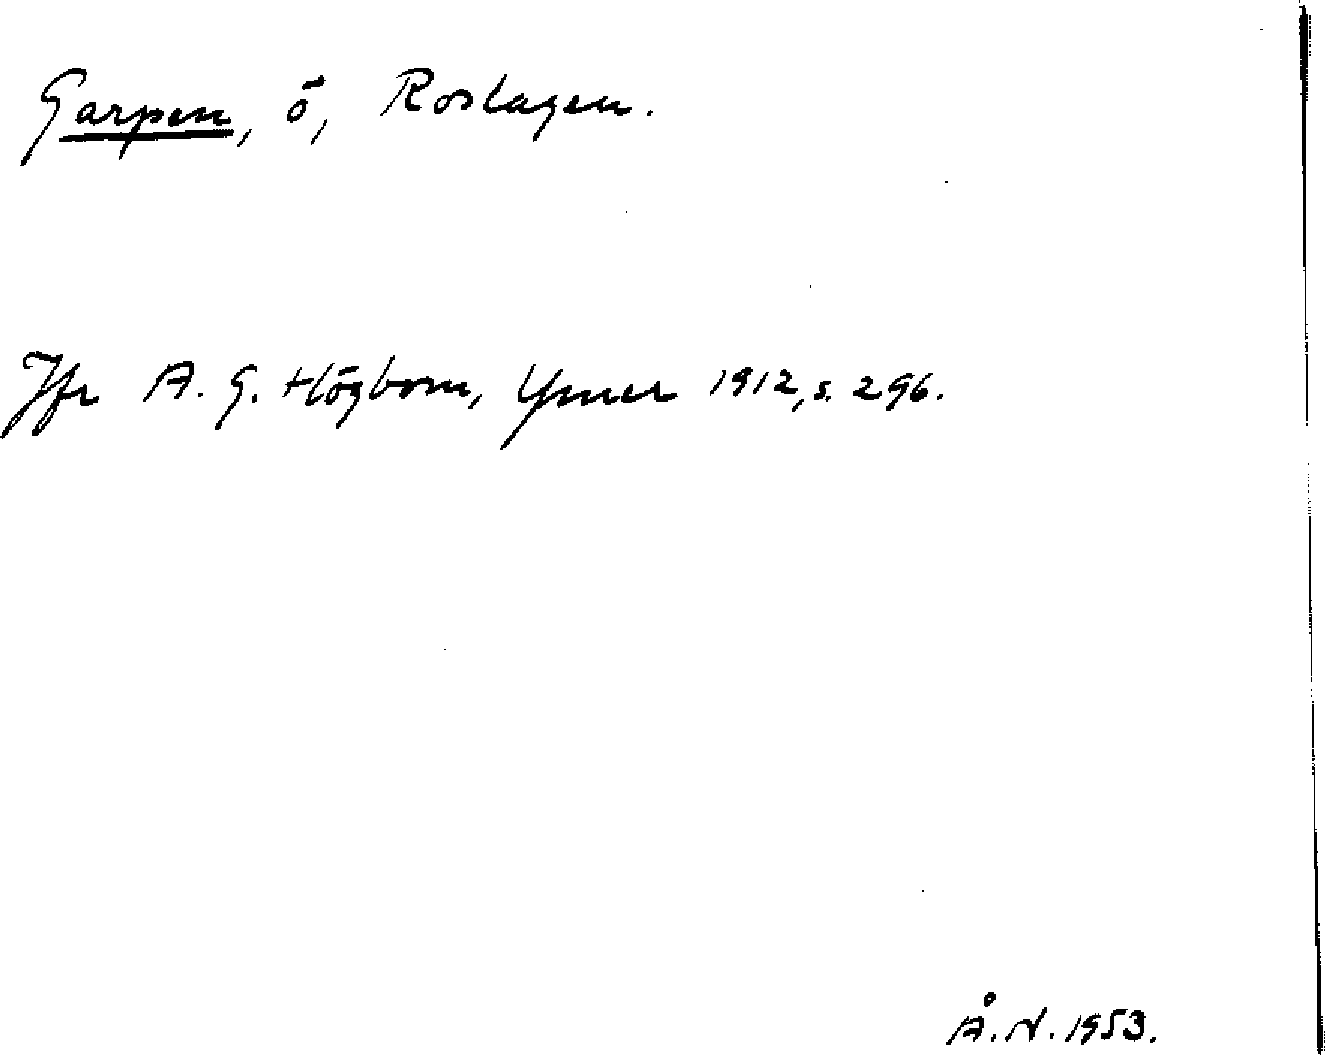 Garpen, ö, Roslagen.
Jfr A. G. Högbom, Ymer 1912, s. 296.
Å. N. 1953.